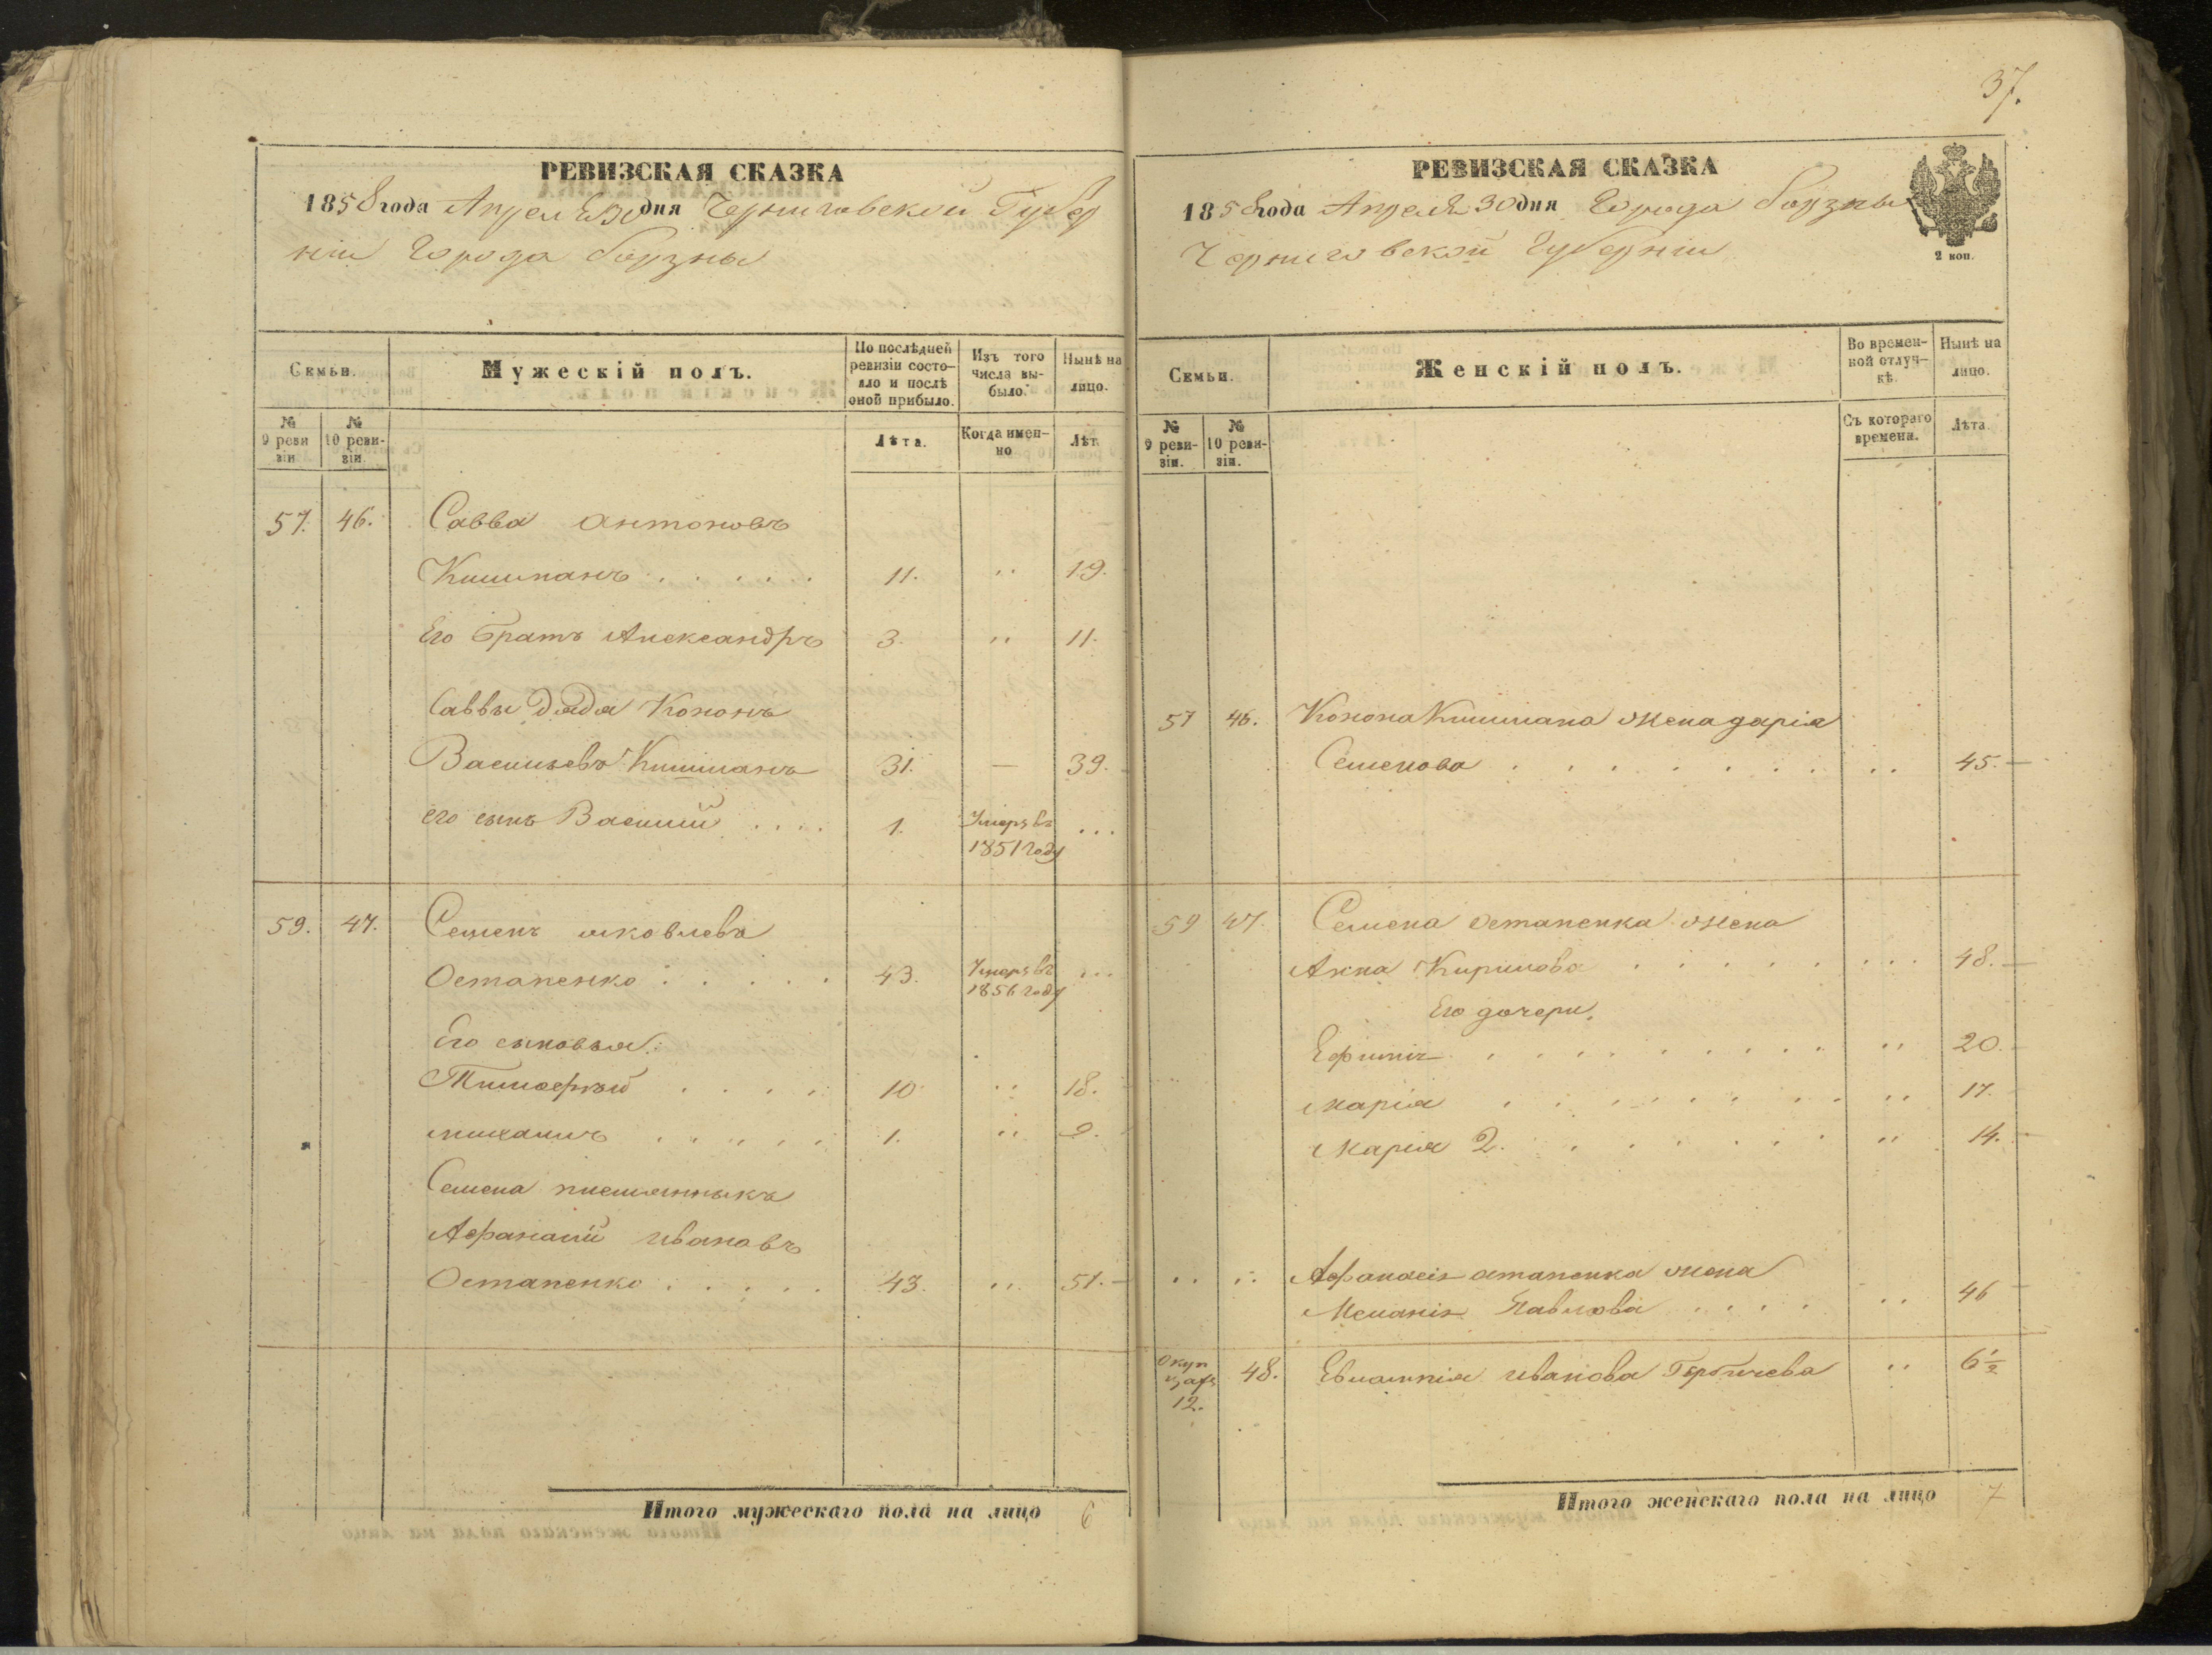 37.
РЕВИЗСКАЯ СКАЗКА
1858 года Апреля 30 дня Черниговской Губер
ніи Города борзны
Семьи.
Мужескій полъ.
По послѣдней ревизіи состояло и послѣ оной прибыло.
Изъ того числа выбыло.
Нынѣ на лицо.
№ 9 ревизіи
№ 10 ревизіи.
Лѣта.
Когда именно
Лѣт.
57. 46. Савва антоновъ
Кишманъ . . . . . . 11. ,, 19.
Его братъ Александръ 3. ,, 11.
Саввы дядя Кононъ
Васильевъ Кишманъ 31. — 39.
его сынъ Василій . . . . 1. Умеръ въ 1851 году ...
59. 47. Семенъ яковлевъ
Остапенко . . . . . 43. Умеръ въ 1856 году ...
Его сыновья:
Тимофѣй . . . . 10 ,, 18.
михаилъ . . . . . . 1. ,, 9.
Семена племянныкъ
Афанасій ивановъ
Остапенко . . . . . 43. ,, 51.
Итого мужескаго пола на лицо 6
РЕВИЗСКАЯ СКАЗКА
1858 года Апреля 30 дня Города борзны
Черниговской Губерніи
2 коп.
Семьи.
Женскій полъ.
Во временной отлучкѣ.
Нынѣ на лицо.
№ 9 ревизіи.
№ 10 ревизіи.
Съ котораго времени.
Лѣта.
57 46. Конона Кишмана жена дарія
Семенова . . . . . . . . ,, 45.
59 47. Семена остапенка жена
Анна Кирилова . . . . . . ... 48.
Его дочери.
Ефимія . . . . . . . . . ,, 20.
марія . . . . . . . . ,, 17.
марія 2. . . . . . . ,, 14.
,, ,, Афанасія остапенка жена
Меланія Павлова . . . . ,, 46
48. Евлампія иванова Гербичева ,, 6 1/2
12.
Итого женскаго пола на лицо 7